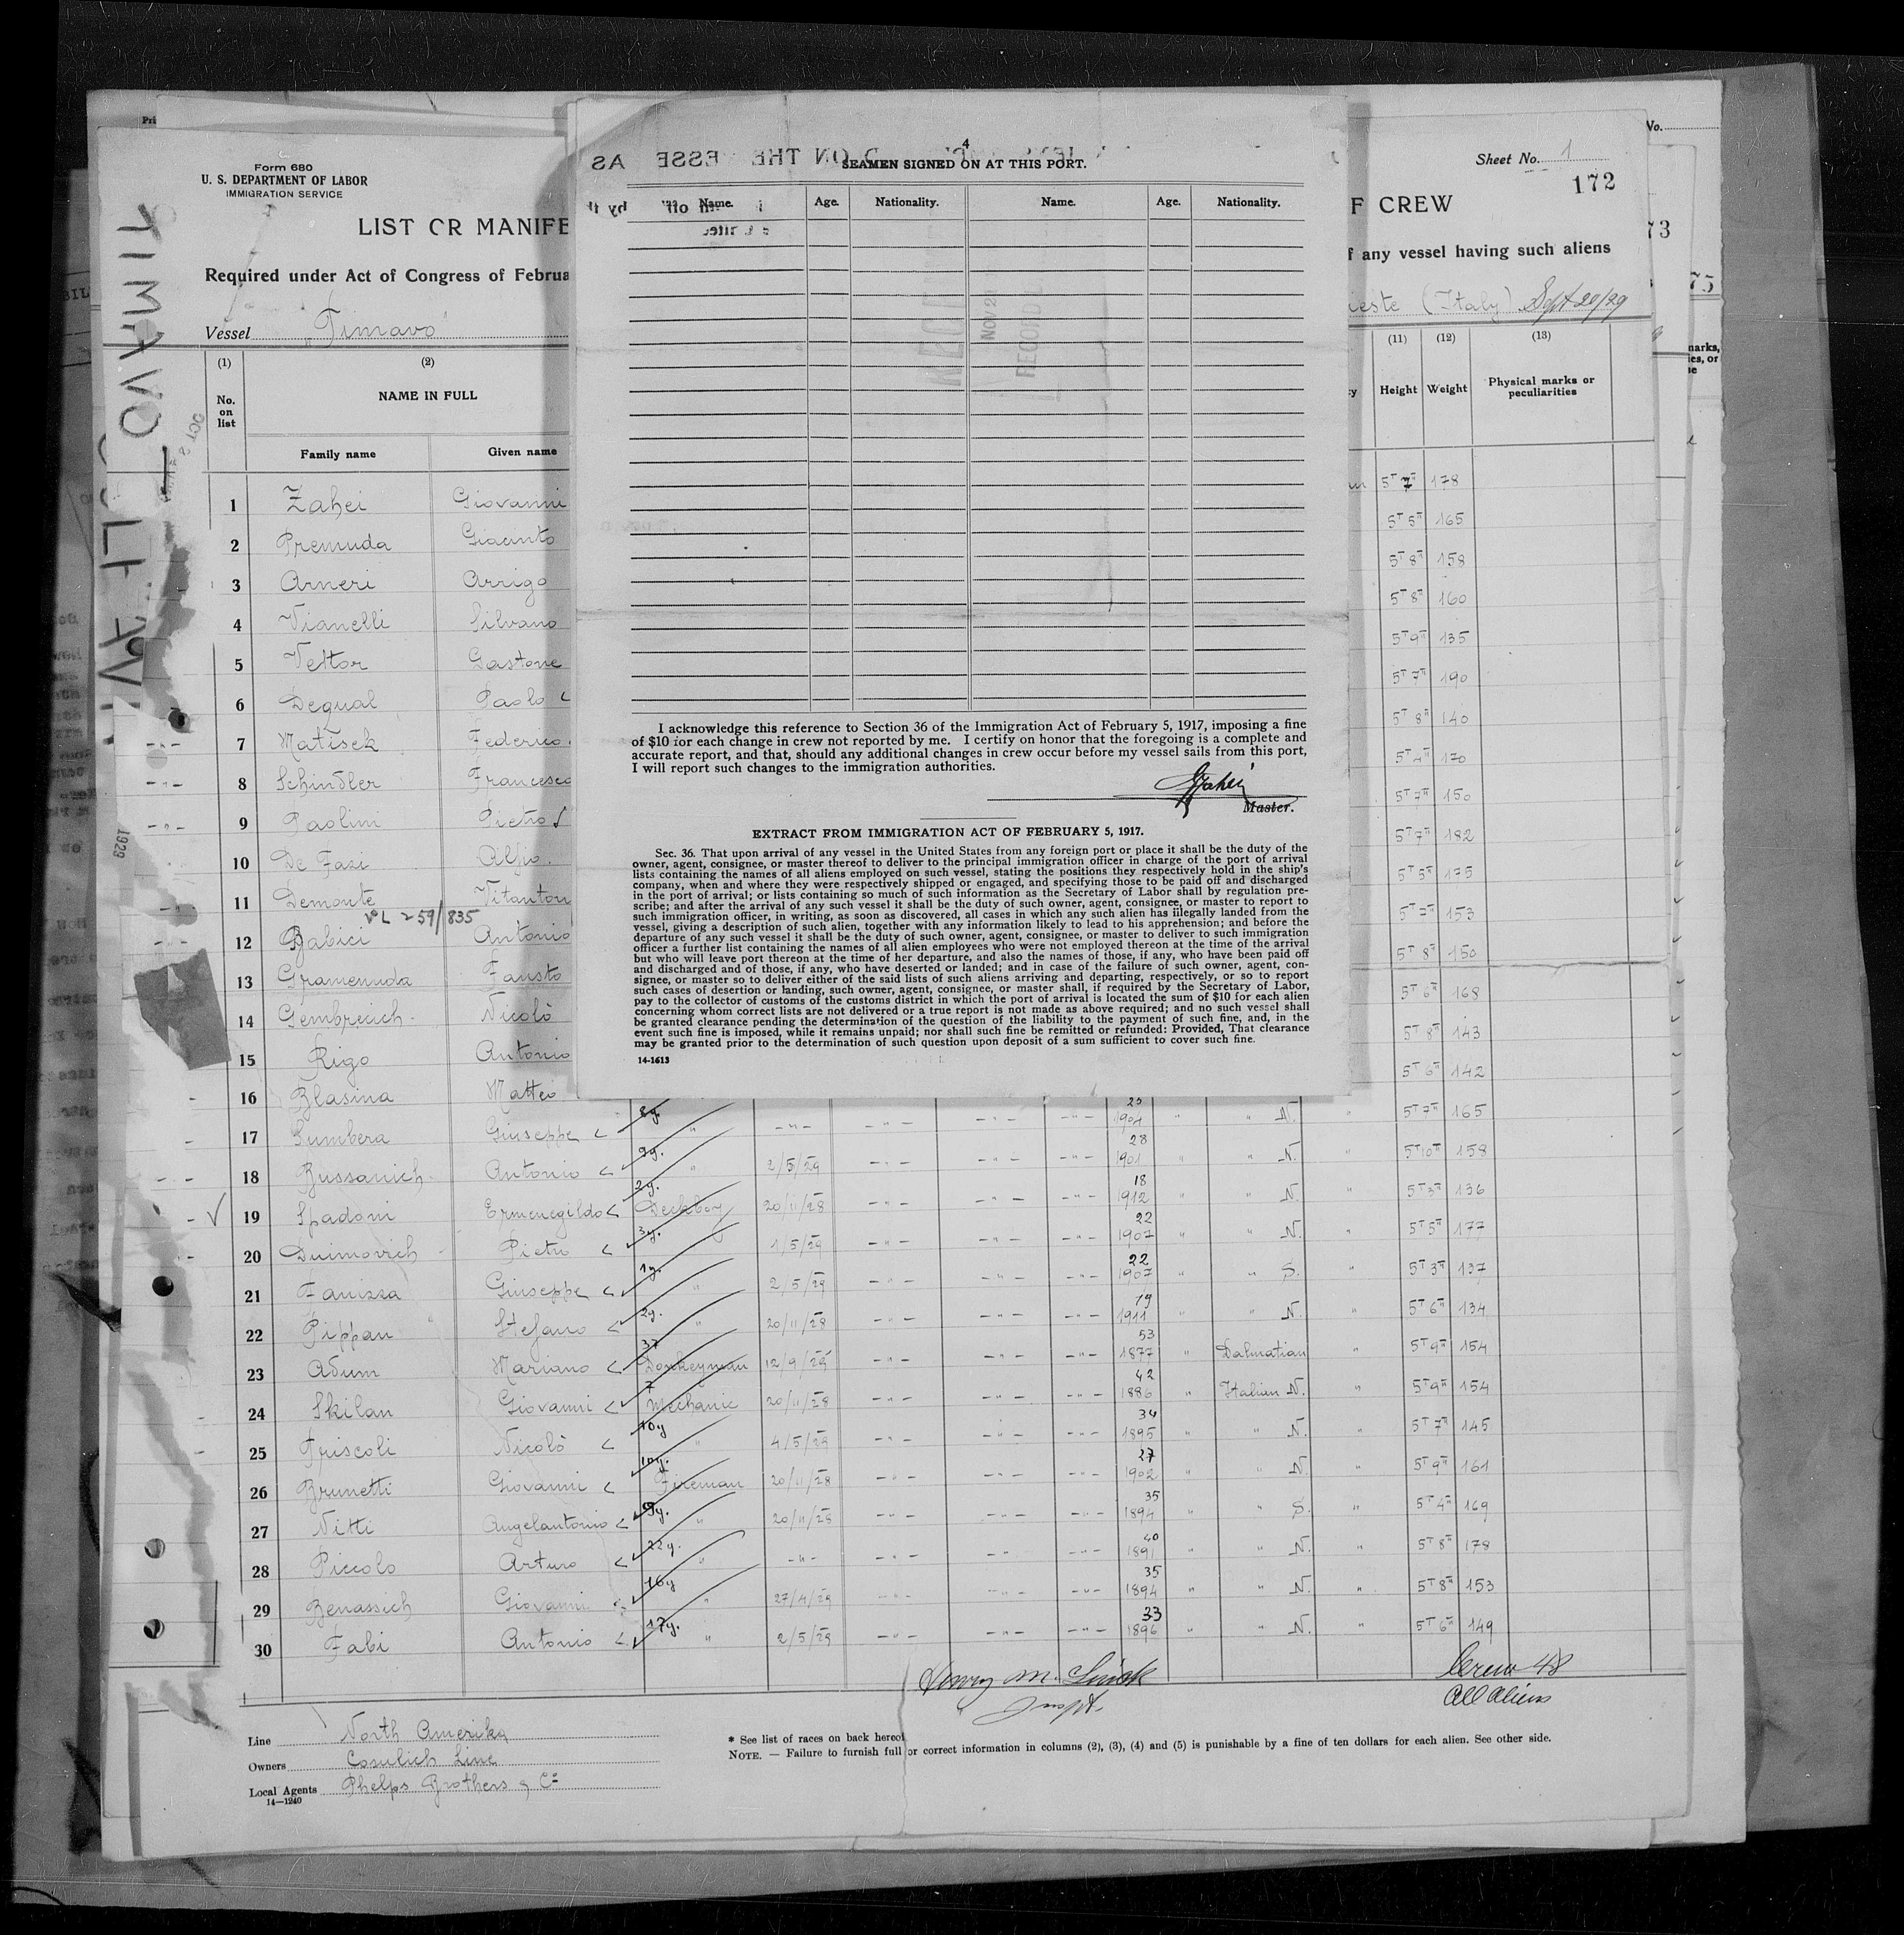 Form 680
U. S. DEPARTMENT OF LABOR
IMMIGRATION SERVICE
LIST OR MANIFE
Required under Act of Congress of Februa
Vessel "Timavo"
(1) (2)
No. on list
NAME IN FULL
Family name Given name
TIMAVO
1929
F CREW
Sheet No. 1
172
f any vessel having such aliens
ieste (Italy) Sept 20/29
(11) (12) (13)
Height Weight Physical marks or peculiarities
No.
73
75
4
SEAMEN SIGNED ON AT THIS PORT.
Name. Age. Nationality. Name. Age. Nationality.
I acknowledge this reference to Section 36 of the Immigration Act of February 5, 1917, imposing a fine
of $10 for each change in crew not reported by me. I certify on honor that the foregoing is a complete and
accurate report, and that, should any additional changes in crew occur before my vessel sails from this port,
I will report such changes to the immigration authorities.
GZahei
Master.
EXTRACT FROM IMMIGRATION ACT OF FEBRUARY 5, 1917.
Sec. 36. That upon arrival of any vessel in the United States from any foreign port or place it shall be the duty of the
owner, agent, consignee, or master thereof to deliver to the principal immigration officer in charge of the port of arrival
lists containing the names of all aliens employed on such vessel, stating the positions they respectively hold in the ship's
company, when and where they were respectively shipped or engaged, and specifying those to be paid off and discharged
in the port of arrival; or lists containing so much of such information as the Secretary of Labor shall by regulation pre-
scribe; and after the arrival of any such vessel it shall be the duty of such owner, agent, consignee, or master to report to
such immigration officer, in writing, as soon as discovered, all cases in which any such alien has illegally landed from the
vessel, giving a description of such alien, together with any information likely to lead to his apprehension; and before the
departure of any such vessel it shall be the duty of such owner, agent, consignee, or master to deliver to such immigration
officer a further list containing the names of all alien employees who were not employed thereon at the time of the arrival
but who will leave port thereon at the time of her departure, and also the names of those, if any, who have been paid off
and discharged and of those, if any, who have deserted or landed; and in case of the failure of such owner, agent, con-
signee, or master so to deliver either of the said lists of such aliens arriving and departing, respectively, or so to report
such cases of desertion or landing, such owner, agent, consignee, or master shall, if required by the Secretary of Labor,
pay to the collector of customs of the customs district in which the port of arrival is located the sum of $10 for each alien
concerning whom correct lists are not delivered or a true report is not made as above required; and no such vessel shall
be granted clearance pending the determination of the question of the liability to the payment of such fine, and, in the
event such fine is imposed, while it remains unpaid; nor shall such fine be remitted or refunded: Provided, That clearance
may be granted prior to the determination of such question upon deposit of a sum sufficient to cover such fine.
14-1613
1 Zahei Giovanni 5 7 178
2 Premuda Giacinto 5 5 165
3 Arneri Arrigo 5 8 158
4 Vianelli Silvano 5 8 160
5 Vettor Gastone 5 9 135
6 Dequal Paolo 5 7 190
7 Matisek Federico 5 8 140
8 Schindler Francesco 5 4 170
9 Paolini Pietro 5 7 150
10 De Fasi Alfio 5 7 182
11 Demonte Vitanton 5 5 175
259/835
12 Babici Antonio 5 7 153
13 Gramenuda Fausto 5 8 150
14 Gembrecich Nicolò 5 6 168
15 Rigo Antonio 5 8 143
16 Blasina Matteo 5 6 142
17 Sumbera Giuseppe 8y. " 25 1904 " " N. " 5 7 165
18 Bussanich Antonio 9y. " 2/5/29 28 1901 " " N. " 5 10 158
19 Spadoni Ermenegildo 2y. Deckboy 20/11/28 18 1912 " " N. " 5 3 136
20 Duimovich Pietro 3y. 1/5/29 22 1907 " " N. " 5 5 177
21 Fanizza Giuseppe 1y. " 2/5/29 22 1907 " " S. " 5 3 137
22 Pippan Stefano 2y. " 20/11/28 19 1911 " " N. " 5 6 134
23 Adum Mariano 37 Donkeyman 12/9/29 53 1877 " Dalmatian " 5 9 154
24 Skilan Giovanni 7 Mechanic 20/11/28 42 1886 " Italian N. " 5 9 154
25 Friscoli Nicolò 10y " 4/5/29 34 1895 " " N. " 5 7 145
26 Brunetti Giovanni 10y. Fireman 20/11/28 27 1902 " " N. " 5 9 161
27 Nitti Angelantonio 9y. " 20/11/28 35 1894 " " S. " 5 4 169
28 Piccolo Arturo 22y. " -"- 40 1891 " " N. " 5 8 178
29 Benassich Giovanni 16y " 27/4/29 35 1894 " " N. " 5 8 153
30 Fabi Antonio 17y. " 2/5/29 33 1896 " " N. " 5 6 149
Inspt.
Crew 48
All aliens
Line North Amerika
Owners Cosulich Line
Local Agents Phelps Brothers & Co
14—1240
* See list of races on back hereof.
NOTE. — Failure to furnish full or correct information in columns (2), (3), (4) and (5) is punishable by a fine of ten dollars for each alien. See other side.